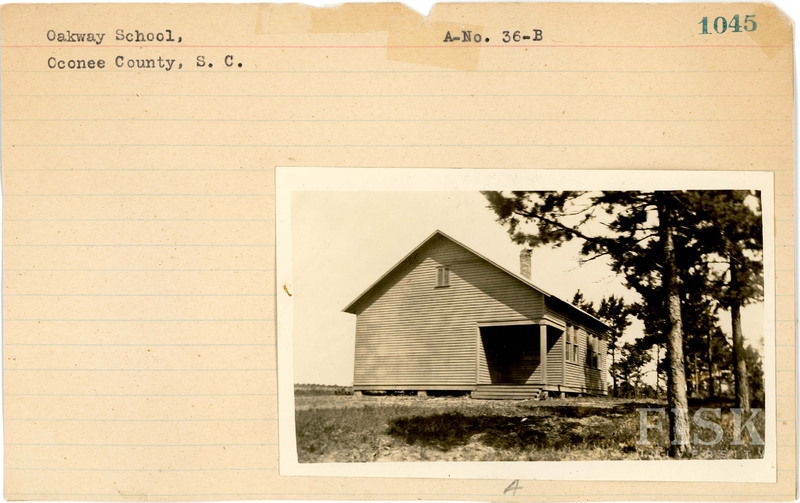 Oakway School,
A-No. 36-B
1045
Oconee County, S. C.
FISK
UNIVERSITY
A